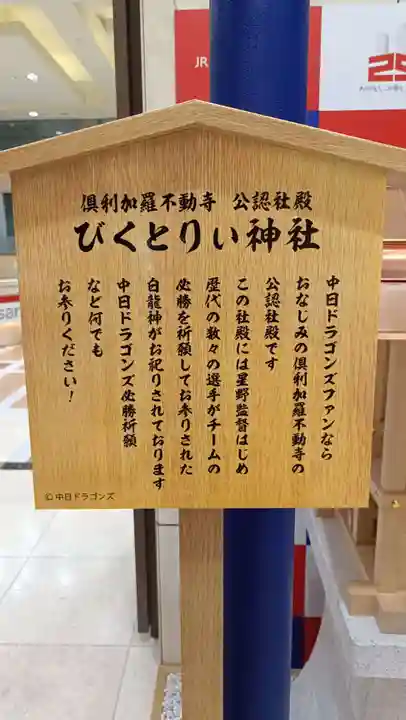 JR
25
倶利加羅不動寺 公認社殿
びくとりぃ神社
中日ドラゴンズファンなら
おなじみの倶利加羅不動寺の
公認社殿です
この社殿には星野監督はじめ
歴代の数々の選手がチームの
必勝を祈願してお参りされた
白龍神がお祀りされております
中日ドラゴンズ必勝祈願
など何でも
お参りください！
© 中日ドラゴンズ